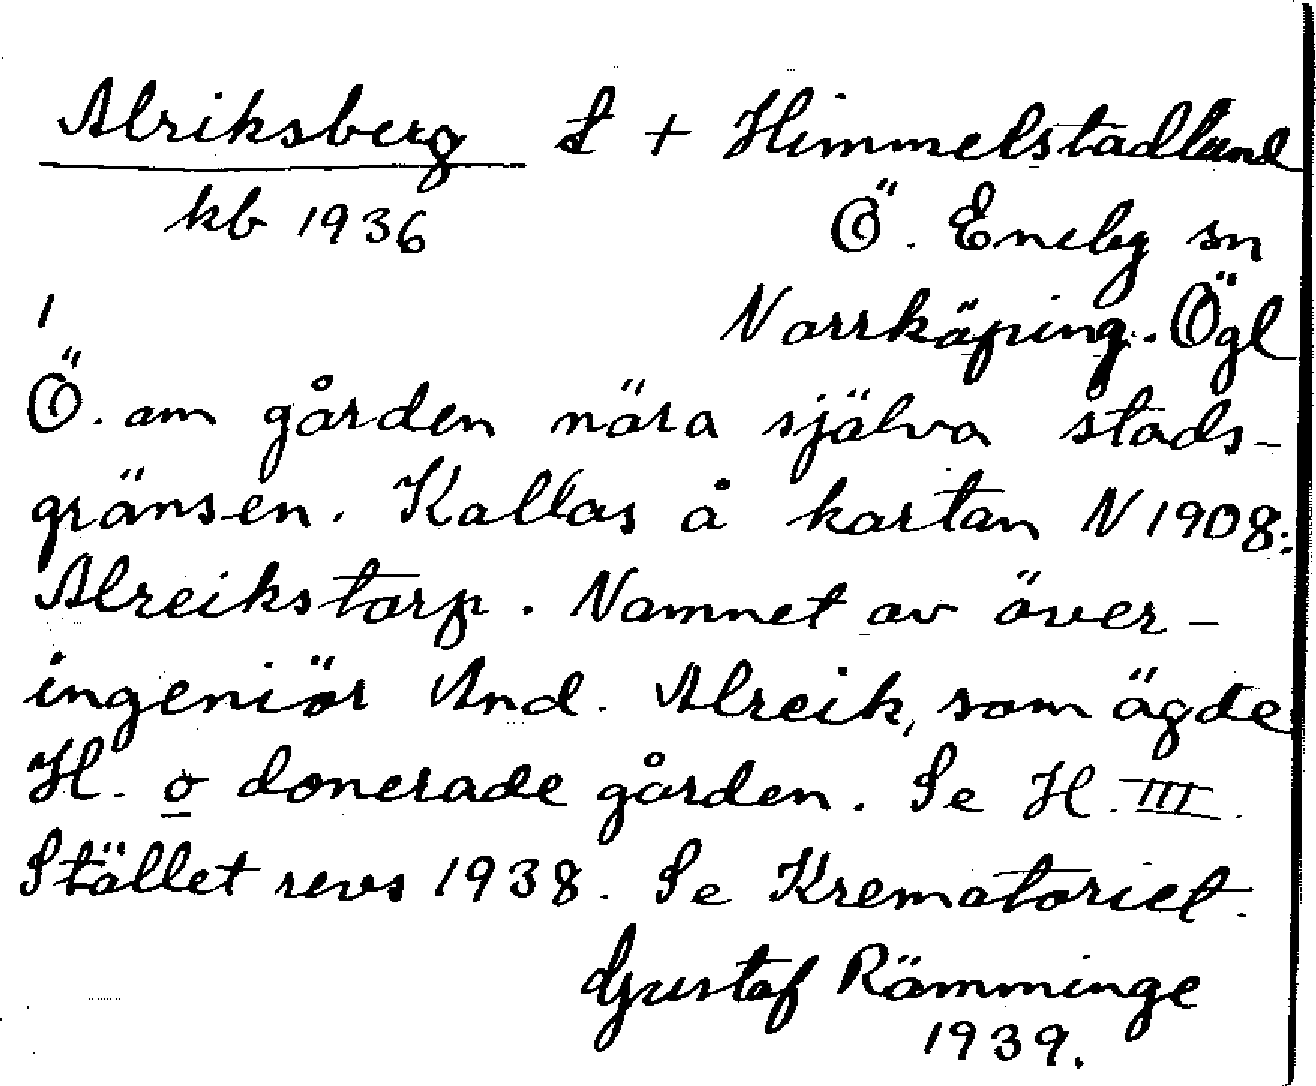 Alriksberg L + Himmelstadlund
kb 1936 Ö. Eneby sn
1 Norrköping. Ögl
Ö. om gården nära själva stads-
gränsen. Kallas å kartan N 1908:
Alreikstorp. Namnet av över-
ingeniör And. Alreik, som ägde
H. o donerade gården. Se H. III.
Stället revs 1938. Se Krematoriet.
Gustaf Rämminge
1939.